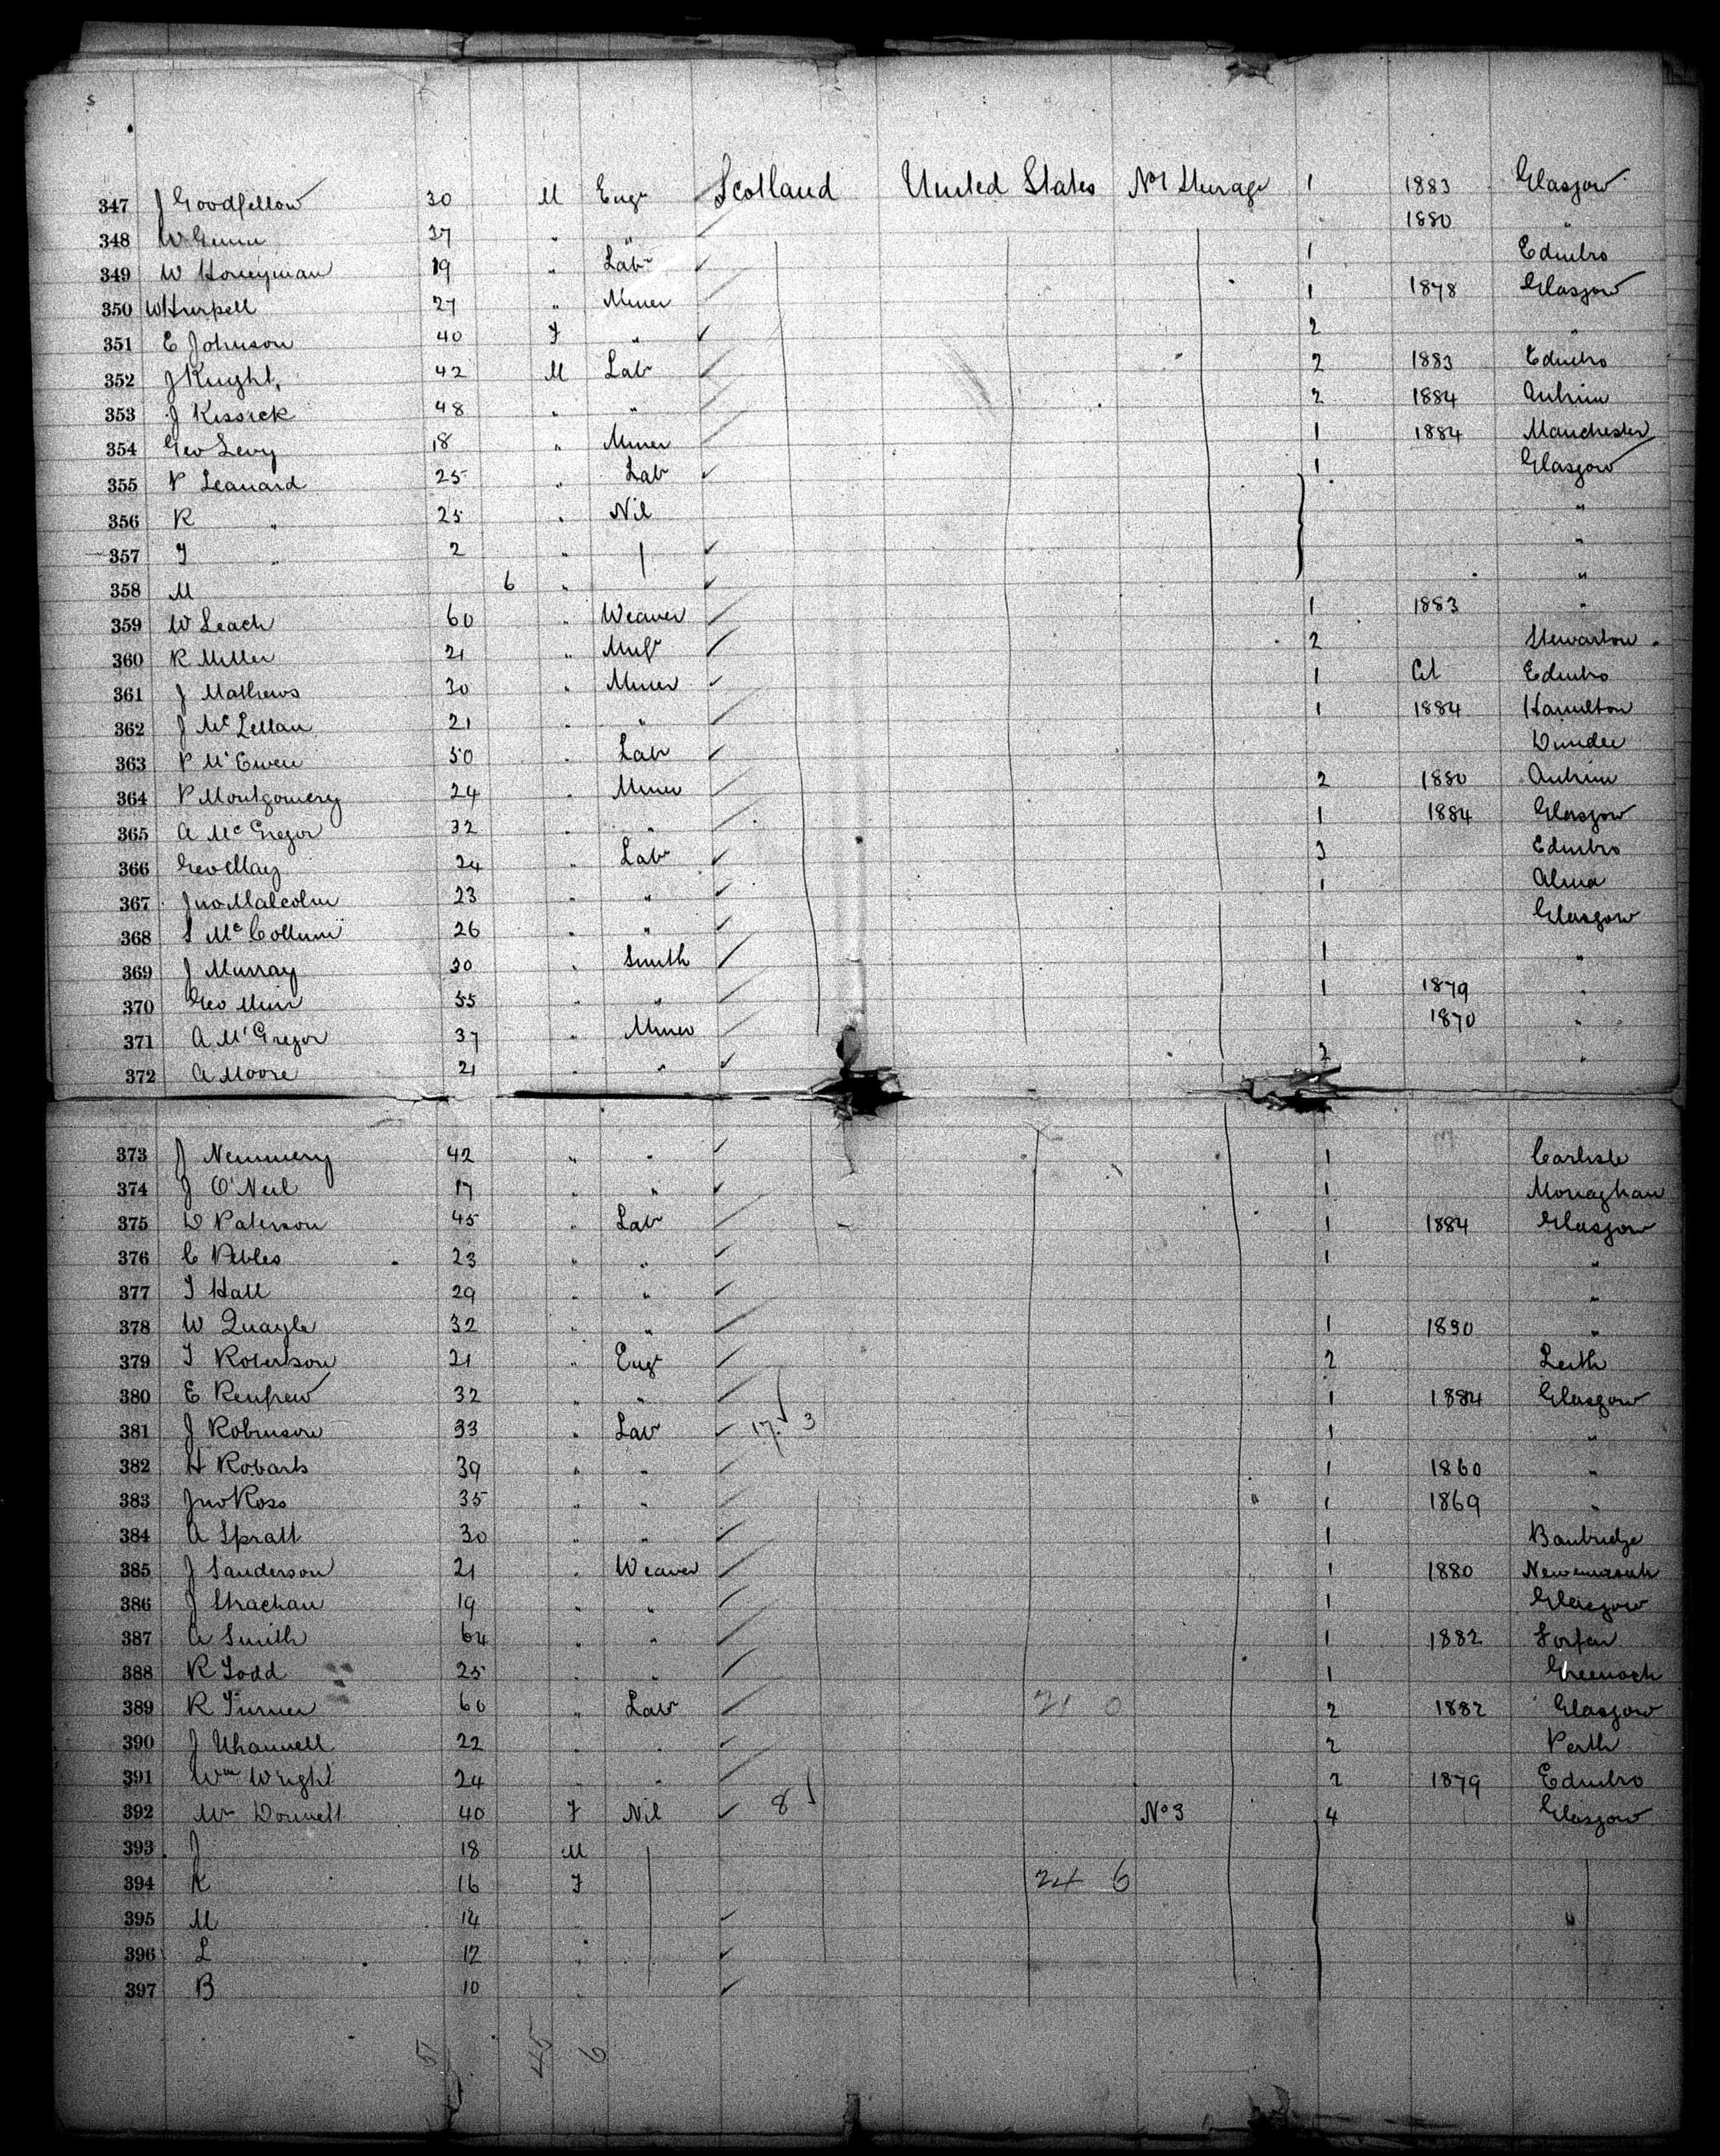 347 J Goodfellow 30 M Engr Scotland United States No 1 Sterage 1 1883 Glasgow
348 W Gunn 37 " " 1880 "
349 W Honeyman 19 " Labr 1 Edinbro
350 W Hurpell 27 " Miner 1 1878 Glasgow
351 E Johnson 40 F " 2 "
352 J Knight 42 M Labr 2 1883 Edinbro
353 J Kissick 48 " " 2 1884 Antrim
354 Geo Levy 18 " Miner 1 1884 Manchester
355 P Leanard 25 " Labr 1 Glasgow
356 R " 25 " Nil "
357 J " 2 " "
358 M 6 " "
359 W Leach 60 " Weaver 1 1883 "
360 R Miller 21 " 2 Stewarton
361 J Mathews 30 " Miner 1 Edinbro
362 J McLellan 21 " " 1 1884 Hamilton
363 P McEwen 50 " Labr Dundee
364 P Montgomery 24 " Miner 2 1880 Antrim
365 A McGregor 32 " " 1 1884 Glasgow
366 Geo May 24 " Labr 3 Edinbro
367 Jno Malcolm 23 " " 1 Alma
368 S McCollum 26 " " Glasgow
369 J Murray 30 " Smith 1 "
370 Geo Muir 55 " " 1 1879 "
371 A McGregor 37 " Miner 1870 "
372 A Moore 21 " " 2 "
373 J Nemmery 42 " " 1 Carlisle
374 J O'Neil 17 " " 1 Monaghan
375 D Paterson 45 " Labr 1 1884 Glasgow
376 C Pebles 23 " " 1 "
377 T Hall 29 " " "
378 W Quayle 32 " " 1 1880 "
379 T Robertson 21 " Engr 2 Leith
380 E Renfrew 32 " " 1 1884 Glasgow
381 J Robinson 33 " Labr 17 3 1 "
382 H Robarts 39 " " 1 1860 "
383 Jno Ross 35 " " 1 1869 "
384 A Spratt 30 " " 1 Banbridge
385 J Sanderson 21 " Weaver 1 1880
386 J Strachan 19 " " 1 Glasgow
387 A Smith 64 " " 1 1882 Forfar
388 R Todd 25 " " 1 Greenock
389 R Turner 60 " Labr 21 0 2 1882 Glasgow
390 J Whannell 22 " " 2 Perth
391 Wm Wright 24 " " 2 1879 Edinbro
392 Mrs Donnell 40 F Nil 8 No 3 4 Glasgow
393 J 18 M
394 K 16 F 24 6
395 M 14 "
396 L 12 "
397 B 10 "
51 45 6